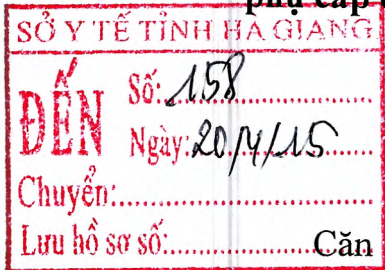 phụ cấp
SỞ Y TẾ TỈNH HÀ GIANG
ĐẾN
Số: 158
Ngày: 20/4/15
Chuyển:
Lưu hồ sơ số:
Căn